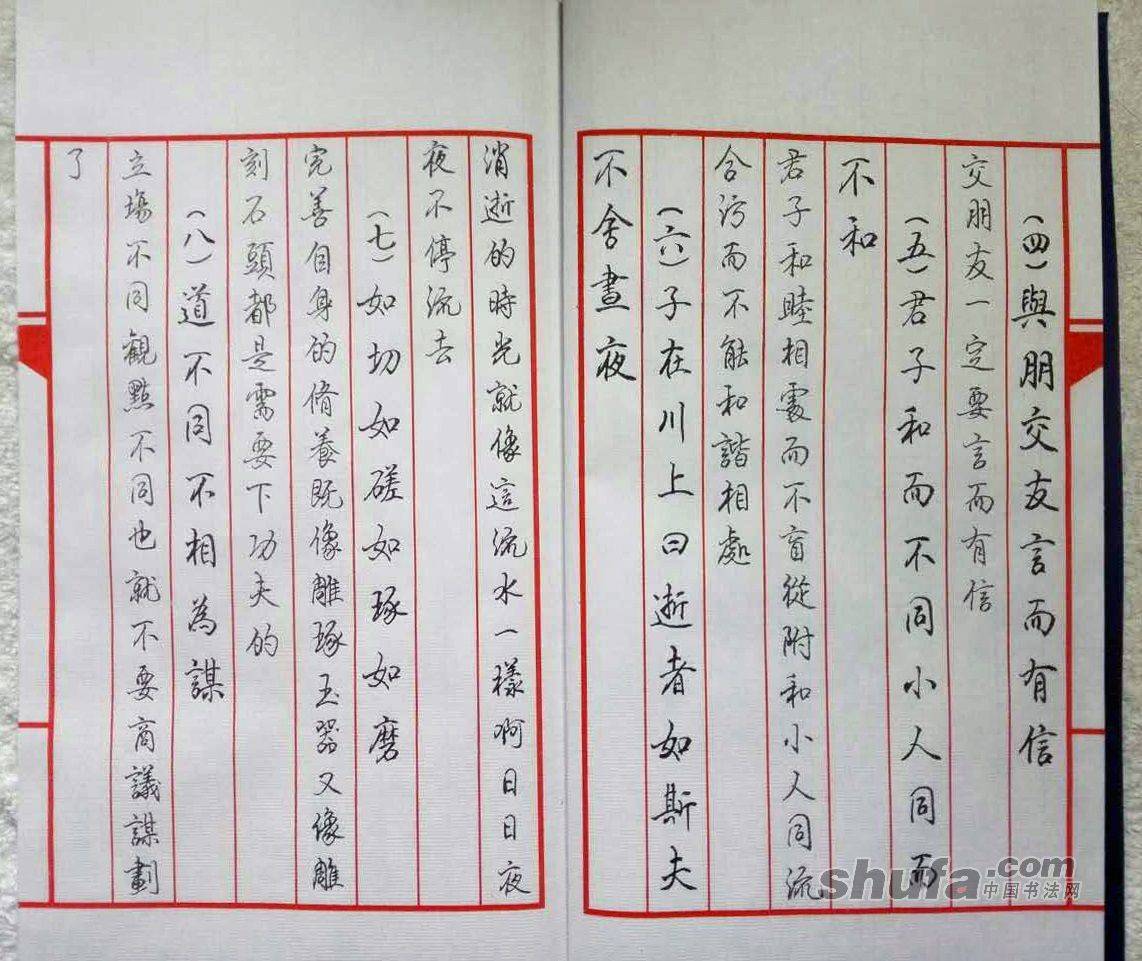 (四)與朋交友言而有信
交朋友一定要言而有信
(五)君子和而不同小人同而
不和
君子和睦相處而不盲從附和小人同流
合污而不能和諧相處
(六)子在川上曰逝者如斯夫
不舍晝夜
消逝的時光就像這流水一樣啊日日夜
夜不停流去
(七)如切如磋如琢如磨
完善自身的脩養既像雕琢玉器又像雕
刻石頭都是需要下功夫的
(八)道不同不相為謀
立場不同觀點不同也就不要商議謀劃
了
shufa.com
中国书法网